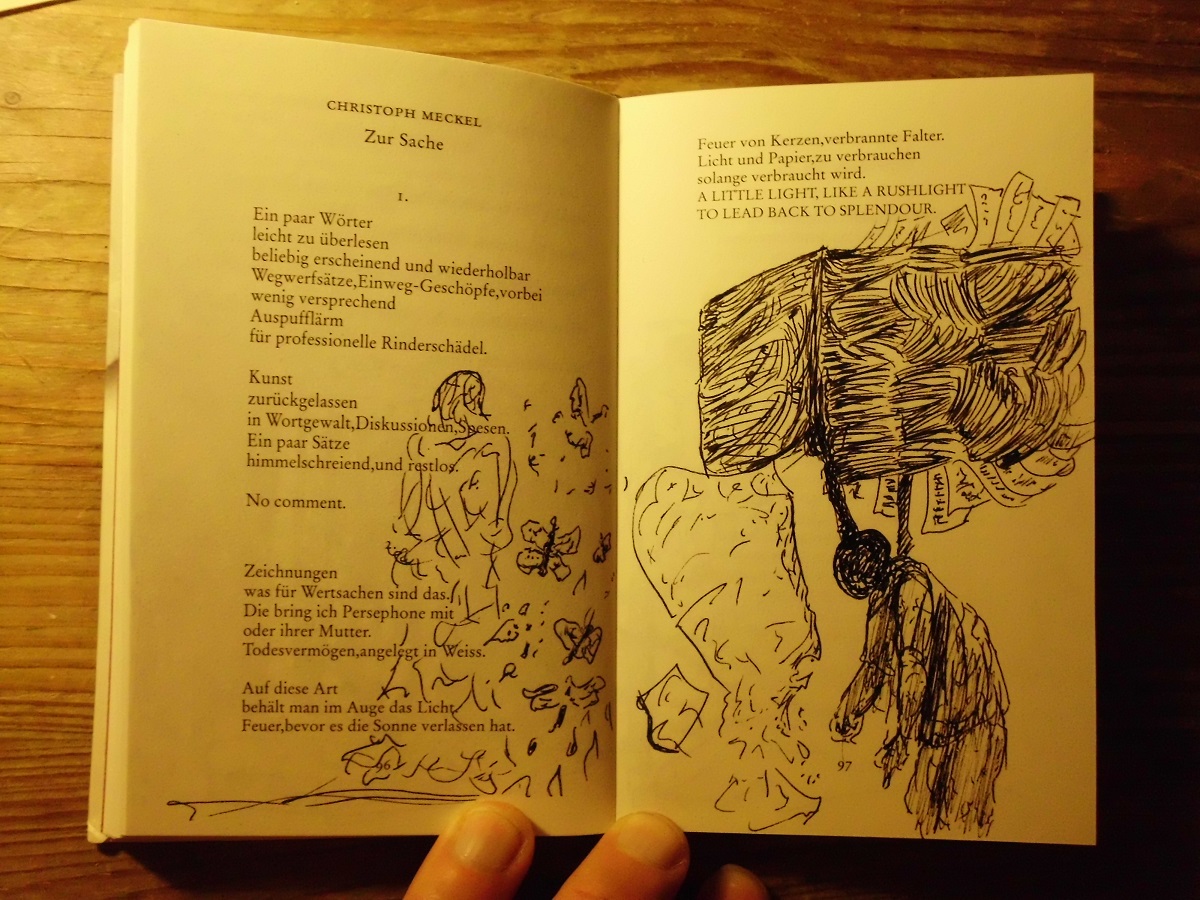 CHRISTOPH MECKEL
Zur Sache
1.
Ein paar Wörter
leicht zu überlesen
beliebig erscheinend und wiederholbar
Wegwerfsätze,Einweg-Geschöpfe,vorbei
wenig versprechend
Auspufflärm
für professionelle Rinderschädel.
Kunst
zurückgelassen
in Wortgewalt,Diskussionen,Spesen.
Ein paar Sätze
himmelschreiend,und restlos.
No comment.
Zeichnungen
was für Wertsachen sind das.
Die bring ich Persephone mit
oder ihrer Mutter.
Todesvermögen,angelegt in Weiss.
Auf diese Art
behält man im Auge das Licht.
Feuer,bevor es die Sonne verlassen hat.
96
Feuer von Kerzen,verbrannte Falter.
Licht und Papier,zu verbrauchen
solange verbraucht wird.
A LITTLE LIGHT, LIKE A RUSHLIGHT
TO LEAD BACK TO SPLENDOUR.
97